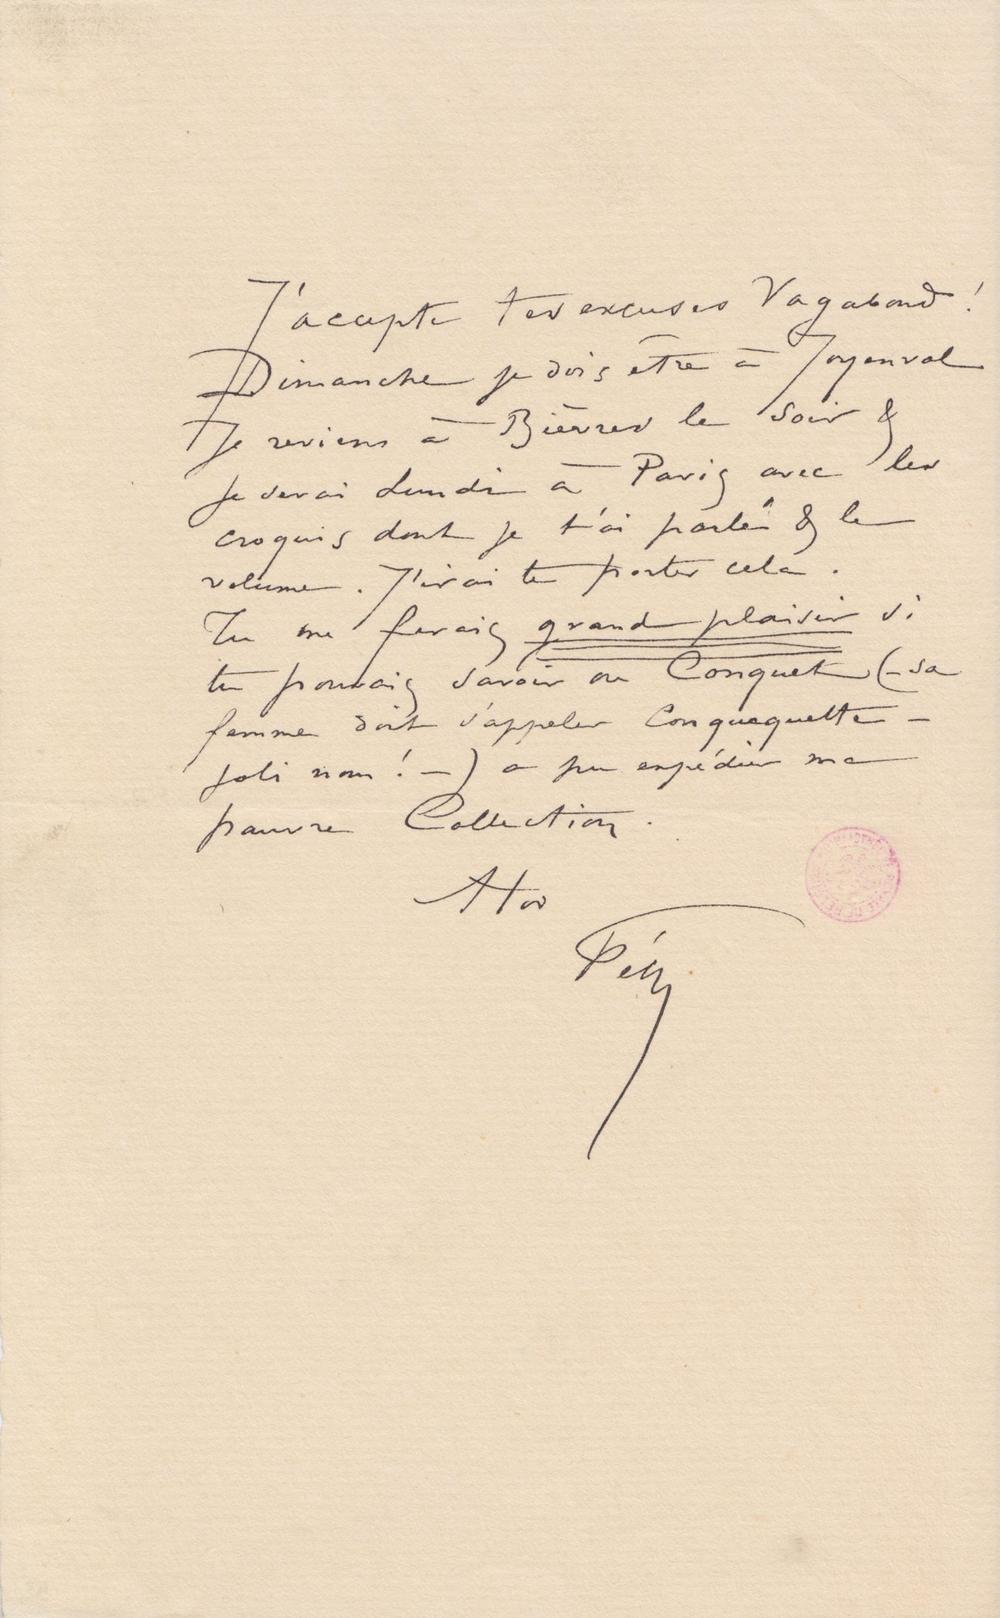 J'accepte tes excuses Vagabond !
Dimanche je dois être à Joyenval
Je reviens à Bièvres le soir &
je serai Lundi à Paris avec les
croquis dont je t'ai parlé & le
volume. J'irai te porter cela.
Tu me ferais grand plaisir si
tu pouvais savoir ou Conquet (– sa
femme doit s'appeler Conquequette –
joli nom ! –) a pu expédier ma
pauvre Collection.
A toi